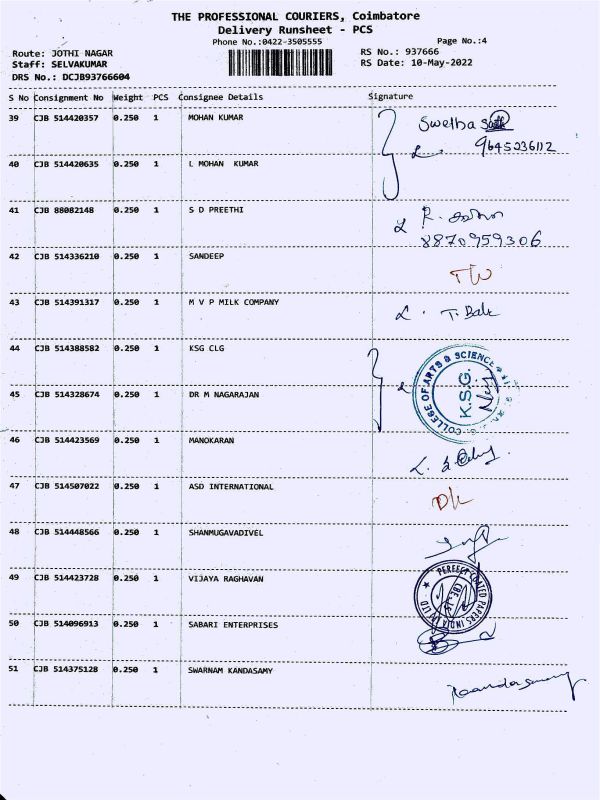 THE PROFESSIONAL COURIERS, Coimbatore
Delivery Runsheet - PCS
Phone No.:0422-3505555
Page No.:4
Route: JOTHI NAGAR
RS No.: 937666
Staff: SELVAKUMAR
RS Date: 10-May-2022
DRS No.: DCJB93766604
S No Consignment No Weight PCS Consignee Details Signature
39 CJB 514420357 0.250 1 MOHAN KUMAR
Swetha
9645236112
40 CJB 514420635 0.250 1 L MOHAN KUMAR
41 CJB 88082148 0.250 1 S D PREETHI
R.
8870959306
42 CJB 514336210 0.250 1 SANDEEP
43 CJB 514391317 0.250 1 M V P MILK COMPANY
T. Bale
44 CJB 514388582 0.250 1 KSG CLG
COLLEGE OF ARTS & SCIENCE
K.S.G.
45 CJB 514328674 0.250 1 DR M NAGARAJAN
46 CJB 514423569 0.250 1 MANOKARAN
47 CJB 514507022 0.250 1 ASD INTERNATIONAL
48 CJB 514448566 0.250 1 SHANMUGAVADIVEL
49 CJB 514423728 0.250 1 VIJAYA RAGHAVAN
PERFECT COATED PAPERS INDIA
50 CJB 514096913 0.250 1 SABARI ENTERPRISES
51 CJB 514375128 0.250 1 SWARNAM KANDASAMY